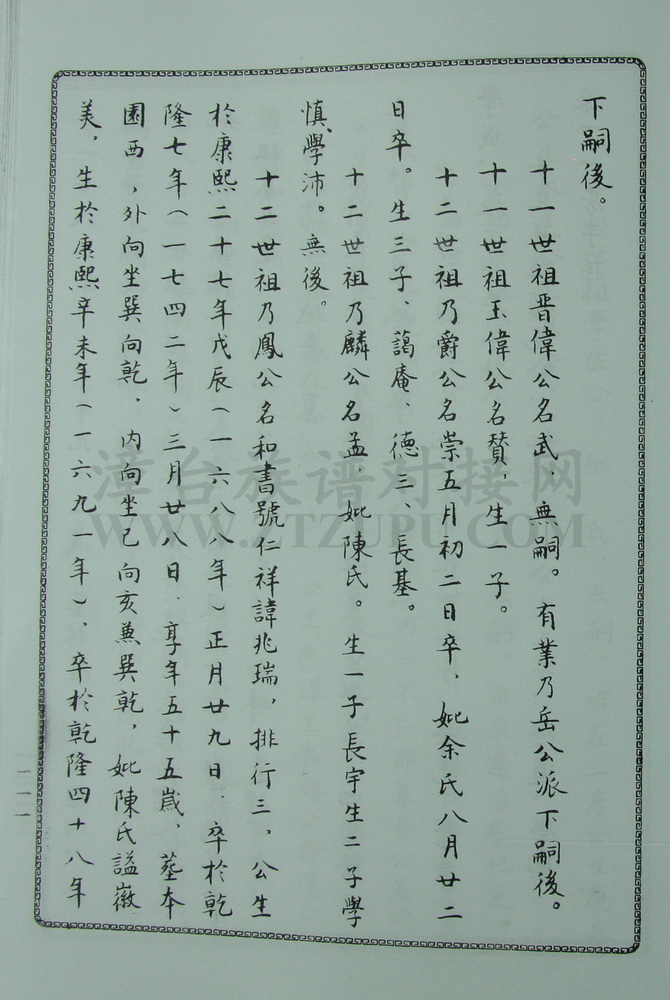 下嗣後。
十一世祖晋偉公名武，無嗣。有業乃岳公派下嗣後。
十一世祖玉偉公名贊，生一子。
十二世祖乃爵公名崇五月初二日卒，妣余氏八月廿二
日卒。生三子、藹庵、德三、長基。
十二世祖乃麟公名孟，妣陳氏。生一子長宇生二子學
慎、學沛。無後。
十二世祖乃鳳公名和書號仁祥諱兆瑞，排行三，公生
於康熙二十七年戊辰（一六八八年）正月廿九日．卒於乾
隆七年（一七四二年）三月廿八日．享年五十五歲，塟本
園西，外向坐巽向乾，内向坐己向亥兼巽乾，妣陳氏謚徽
美，生於康熙辛未年（一六九一年），卒於乾隆四十八年
一一一
漳台族谱对接网
WWW.ZTZUPU.COM